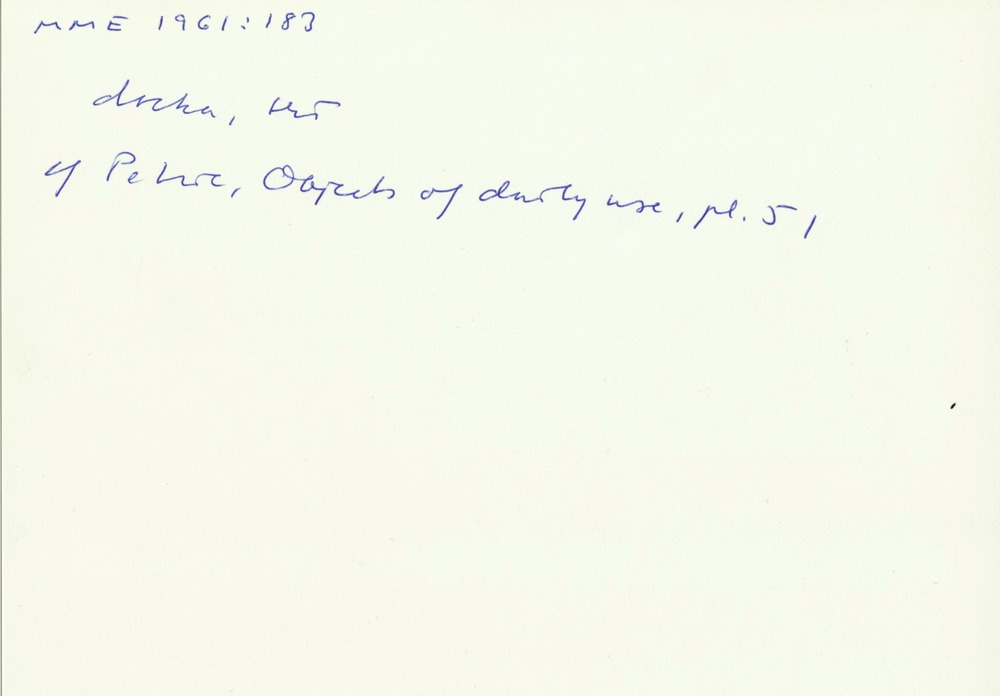 MME 1961:183
docka, trä
cf Petrie, Objects of daily use, pl. 51